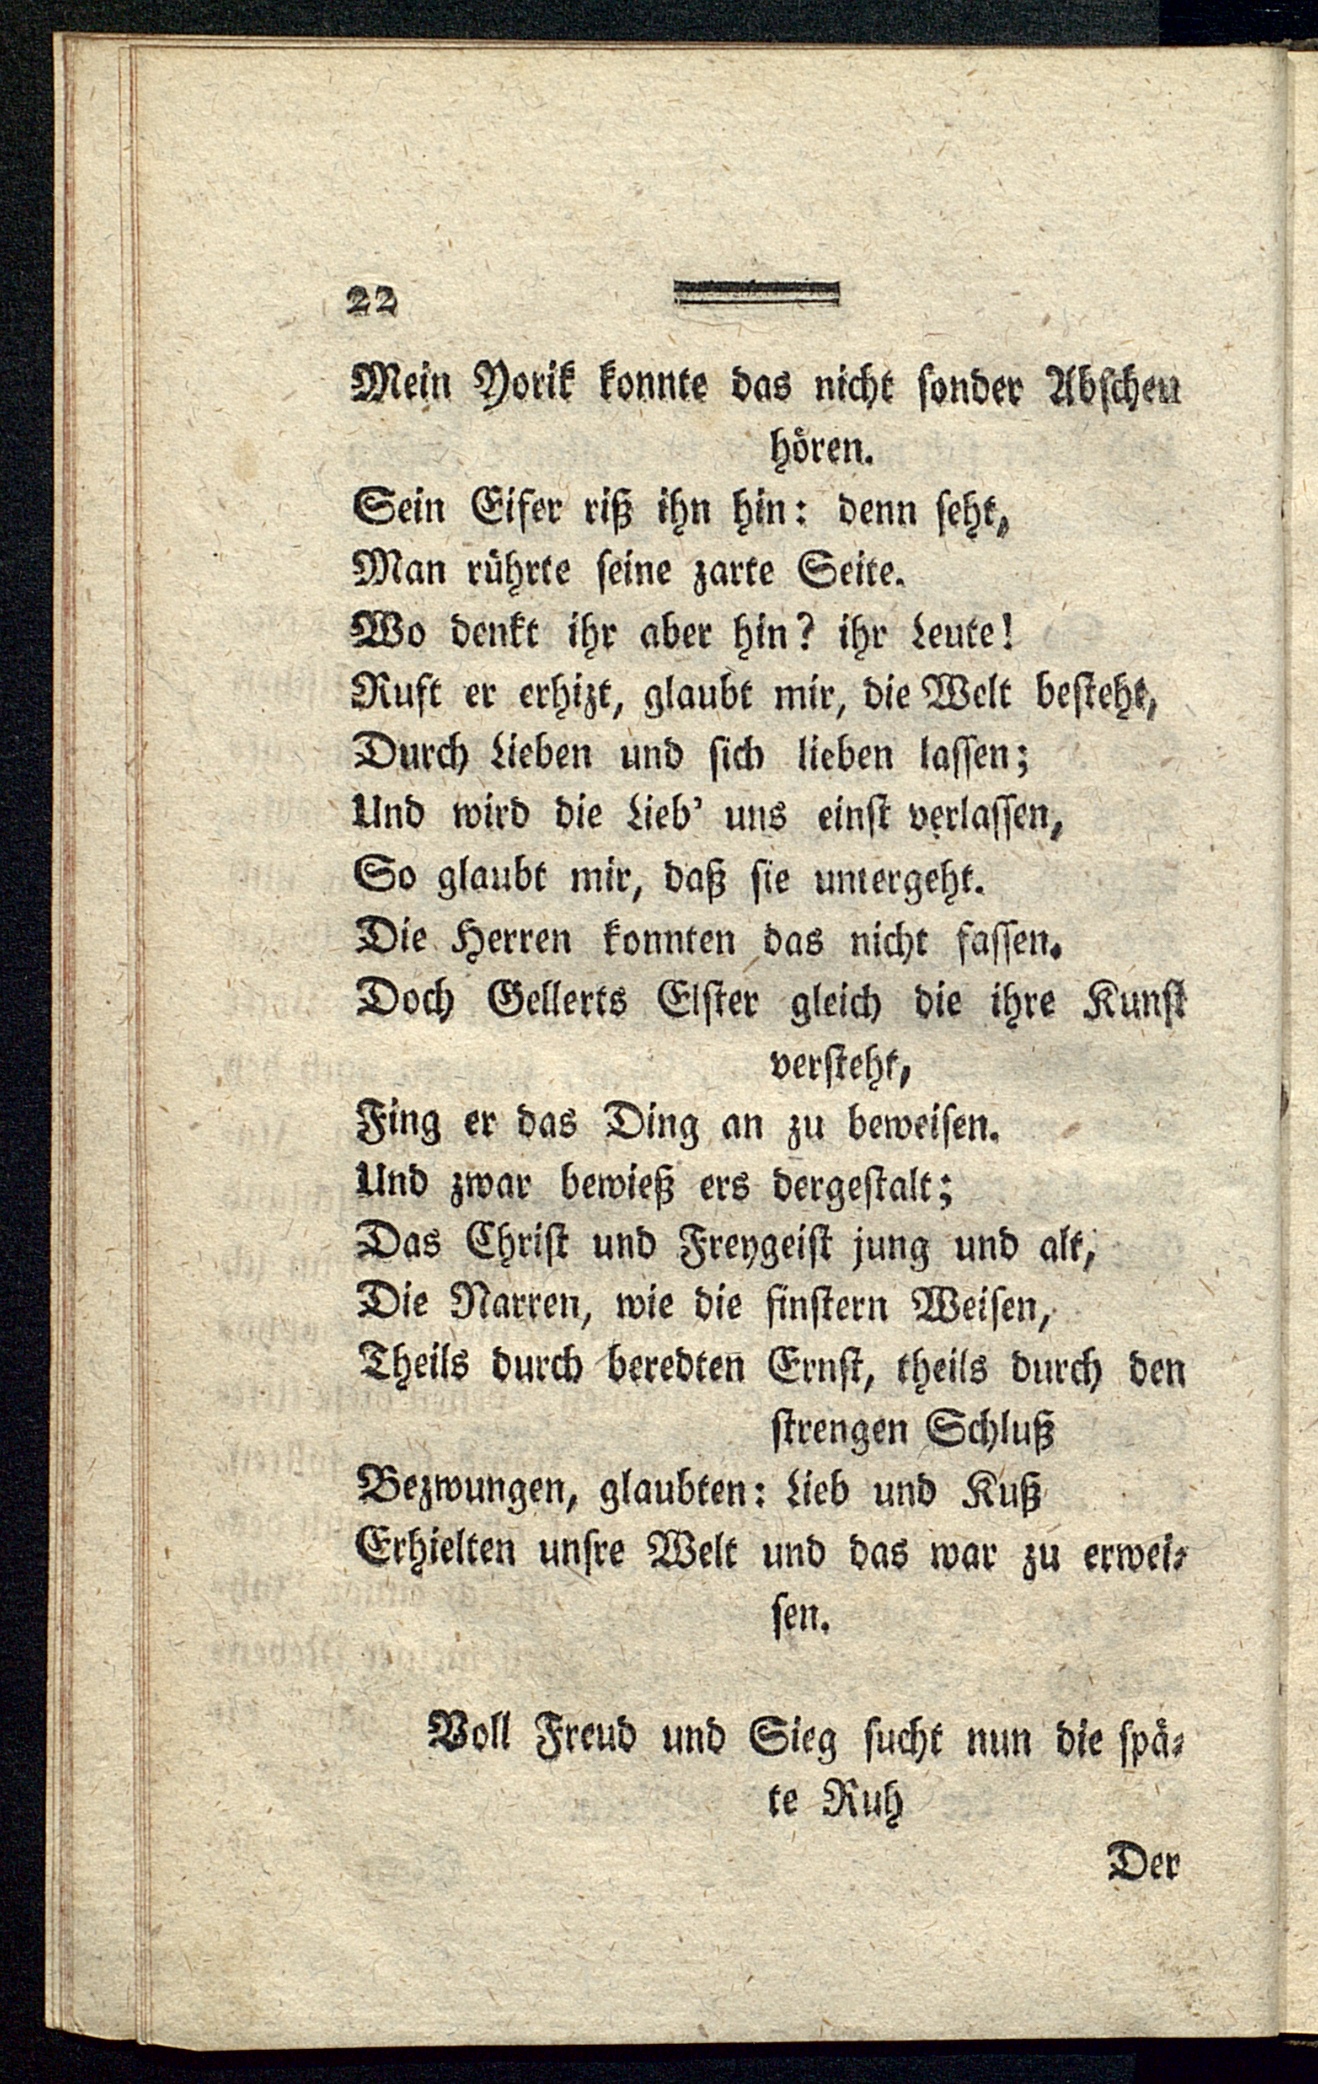 22
Mein Yorik konnte das nicht sonder Abscheu
hören.
Sein Eifer riß ihn hin: denn seht,
Man rührte seine zarte Seite.
Wo denkt ihr aber hin? ihr Leute!
Ruft er erhizt, glaubt mir, die Welt besteht,
Durch Lieben und sich lieben lassen;
Und wird die Lieb' uns einst verlassen,
So glaubt mir, daß sie untergeht.
Die Herren konnten das nicht fassen.
Doch Gellerts Elster gleich die ihre Kunst
versteht,
Fing er das Ding an zu beweisen.
Und zwar bewieß ers dergestalt;
Das Christ und Freygeist jung und alt,
Die Narren, wie die finstern Weisen,
Theils durch beredten Ernst, theils durch den
strengen Schluß
Bezwungen, glaubten: Lieb und Kuß
Erhielten unsre Welt und das war zu erwei-
sen.
Voll Freud und Sieg sucht nun die spä-
te Ruh
Der